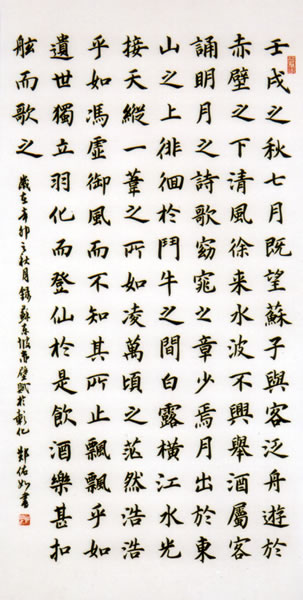 壬戌之秋七月既望蘇子與客泛舟遊於
赤壁之下清風徐來水波不興舉酒屬客
誦明月之詩歌窈窕之章少焉月出於東
山之上徘徊於鬥牛之間白露橫江水光
接天縱一葦之所如凌萬頃之茫然浩浩
乎如馮虛御風而不知其所止飄飄乎如
遺世獨立羽化而登仙於是飲酒樂甚扣
舷而歌之
歲在辛卯之秋月錄蘇東坡赤壁賦於彰化 鄭佑如書